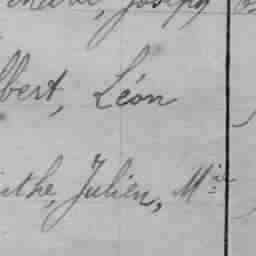 Joseph
lbert, Léon
the, Julien, M^ie